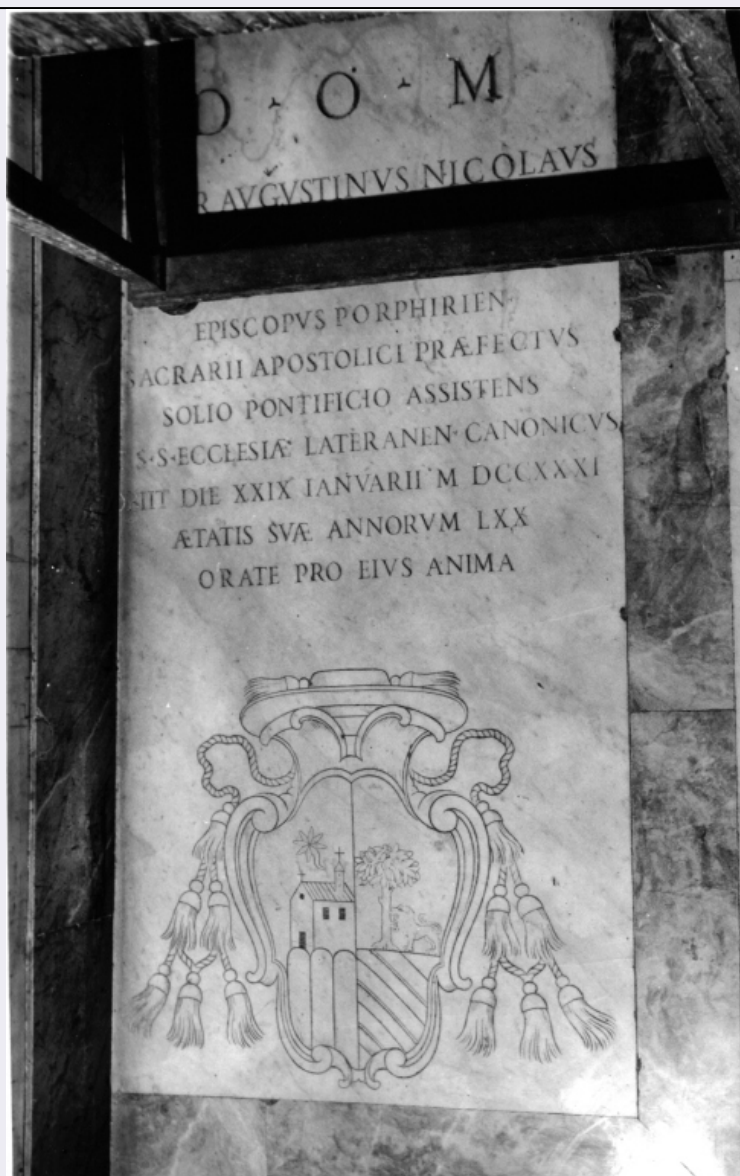 O · O · M
AVGVSTINVS NICOLAVS
EPISCOPVS PORPHIRIEN·
SACRARII APOSTOLICI PRÆFECTVS
SOLIO PONTIFICIO ASSISTENS
S·S·ECCLESIÆ LATERANEN·CANONICVS
DIE XXIX IANVARII M DCCXXXI
ÆTATIS SVÆ ANNORVM LXX
ORATE PRO EIVS ANIMA